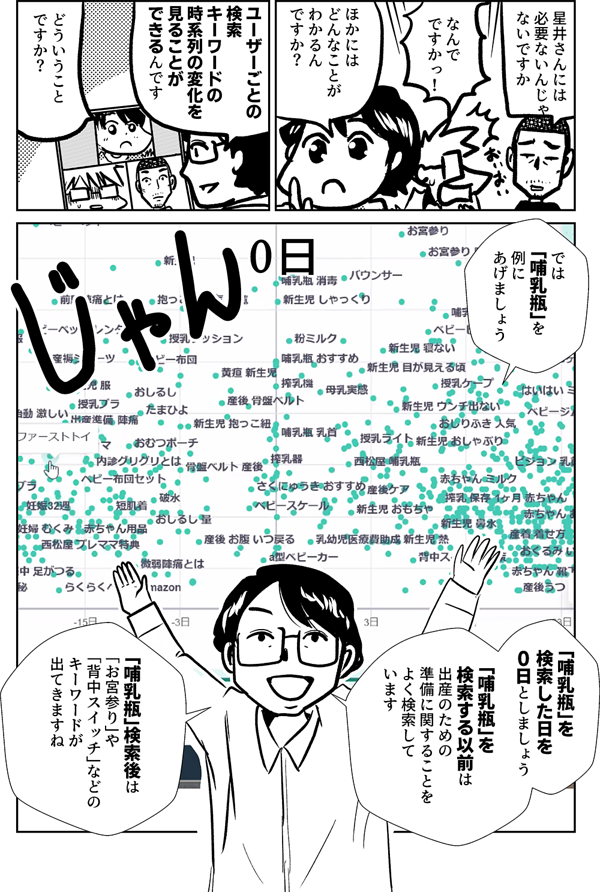 星井さんには
必要ないんじゃ
ないですか
なんで
ですかっ!
おい、おい
ほかには
どんなことが
わかるん
ですか?
ユーザーごとの
検索
キーワードの
時系列の変化を
見ることが
できるんです
どういうこと
ですか?
では
「哺乳瓶」を
例に
あげましょう
じゃん
0日
お宮参り
お宮参り
哺乳瓶 消毒
バウンサー
新生児 しゃっくり
粉ミルク
哺乳瓶 おすすめ
新生児 寝ない
新生児 目が見える頃
ベビー布団
黄疸 新生児
搾乳機
母乳実感
授乳ケープ
はいはい
おしるし
産後 骨盤ベルト
授乳ブラ
たまひよ
新生児 ウンチ出ない
出産準備
陣痛
新生児 抱っこ紐
おしりふき 人気
ファーストトイ
おむつポーチ
哺乳瓶 乳首
授乳ライト
新生児 おしゃぶり
内診グリグリとは
骨盤ベルト 産後
搾乳器
西松屋 哺乳瓶
ピジョン
ベビー布団セット
さくにゅうき おすすめ
産後ケア
赤ちゃん ミルク
破水
搾乳 保存
1ヶ月 赤ちゃん
妊娠32週
短肌着
ベビースケール
新生児 おもちゃ
おしるし 量
新生児 鼻水
妊婦 むくみ
赤ちゃん用品
産後 お腹 いつ戻る
乳幼児医療費助成
新生児 熱
産着 着せ方
西松屋 プレママ特典
a型ベビーカー
おくるみ
微弱陣痛とは
足がつる
産後うつ
-15日
-3日
3日
「哺乳瓶」を
検索した日を
0日としましょう
「哺乳瓶」を
検索する以前は
出産のための
準備に関することを
よく検索して
います
「哺乳瓶」検索後は
「お宮参り」や
「背中スイッチ」などの
キーワードが
出てきますね